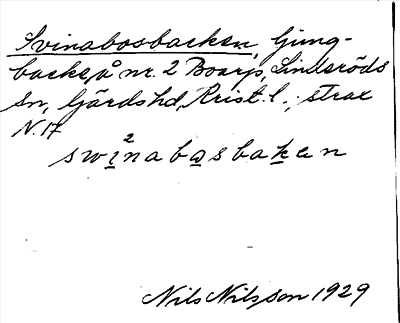 Svinabosbacken, ljung-
backe, å nr. 2 Boarp, Linderöds
sn, Gärds hd, Krist. l.; strax
N. 17
swinabosbaken
Nils Nilsson 1929